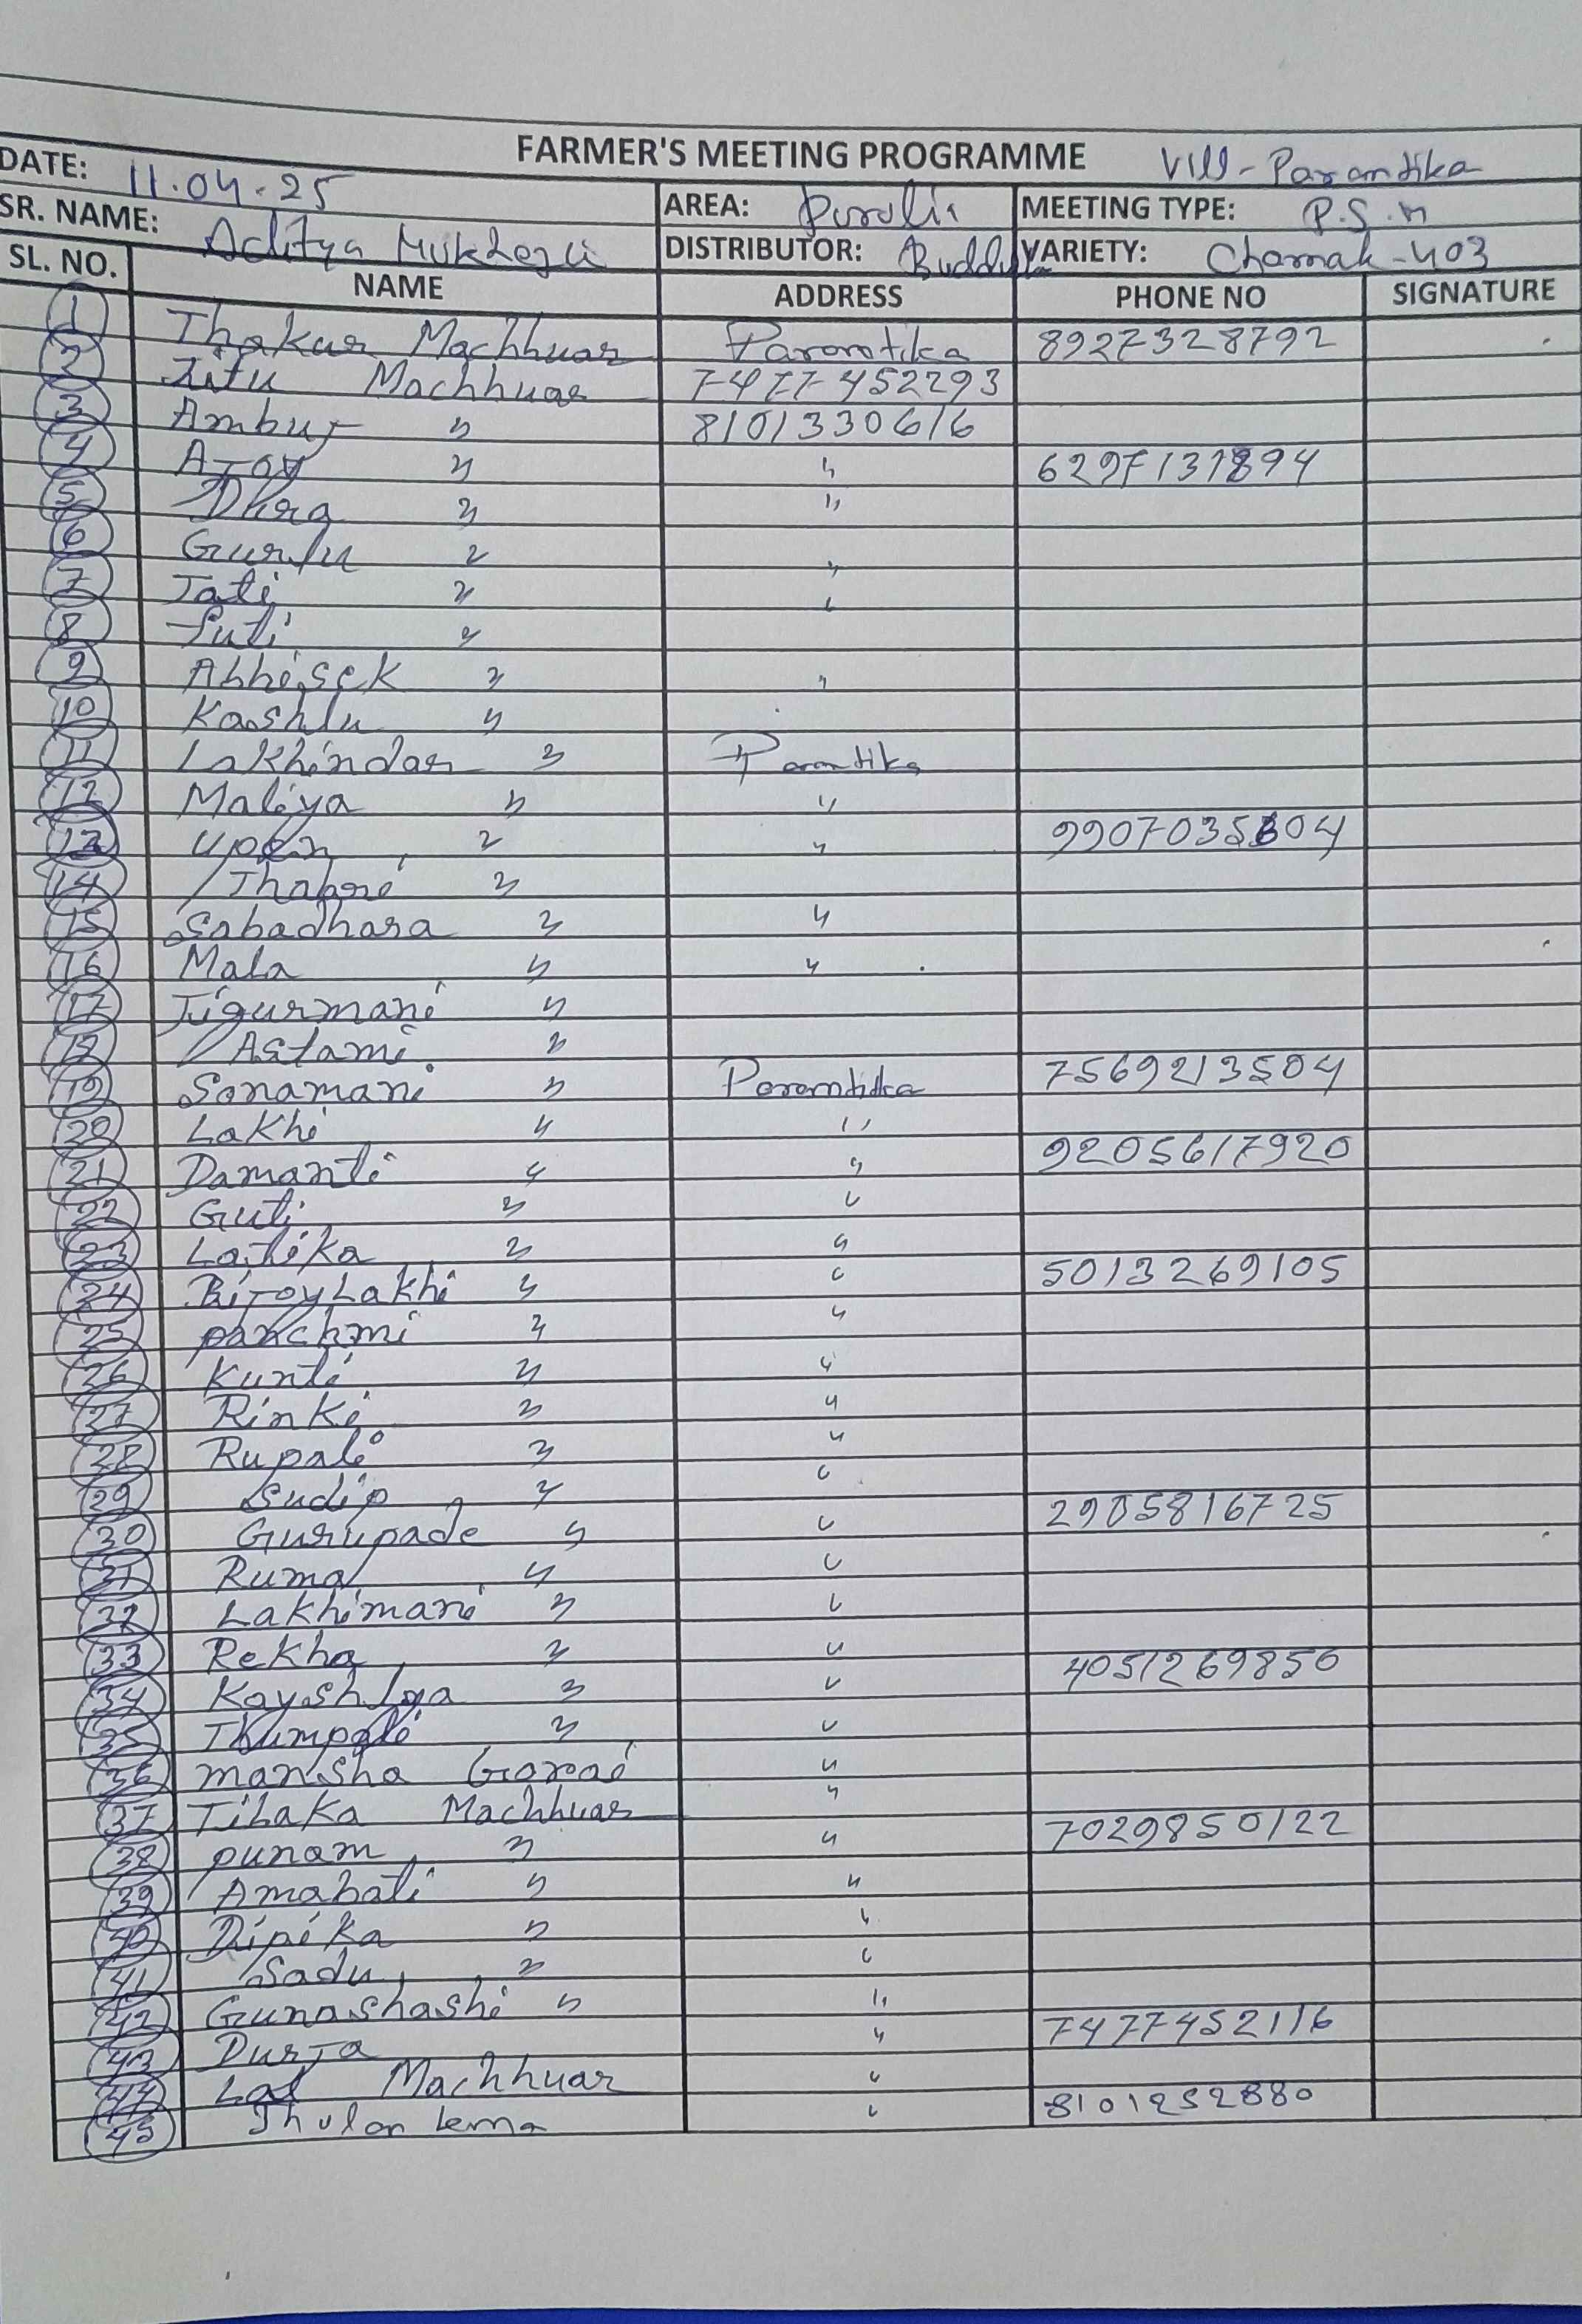 FARMER'S MEETING PROGRAMME Vill - Parantika
DATE: 11.04.25
AREA: Purulia MEETING TYPE: P.S.M
SR. NAME: Aditya Mukherjee
DISTRIBUTOR: VARIETY: Chamak-403
SL. NO. NAME ADDRESS PHONE NO SIGNATURE
1 Thakur Machhuar Parantika 8927328792
2 Jitu Machhuar 7477452293
3 Ambuj " 8101330616
4 Ajoy " " 6297131894
5 " "
6 " "
7 Jati " "
8 "
9 Abhisek " "
10 "
11 Lakhindar " Parantika
12 Maliya " "
13 Upen " "
14 "
15 Sabadhara " "
16 Mala " "
17 Jigurmani "
18 Astami "
19 Sonamani " Parantika 7569213504
20 Lakhi " "
21 Damanti " " 9205617920
22 Guti " "
23 Latika " "
24 Bijoylakhi " " 5013269105
25 panchmi " "
26 Kunti " "
27 Rinki " "
28 Rupali " "
29 Sudip " "
30 Gurupade " " 2905816725
31 Ruma " "
32 Lakhimani " "
33 Rekha " "
34 " " 4051269850
35 " "
36 mansha Gorai "
37 Tilaka Machhuar "
38 punam " " 7029850122
39 Amabati " "
40 Dipika " "
41 Sadu " "
42 Gunashashi " "
43 Durja " 7477452116
44 Lal Machhuar "
45 Jhulan "